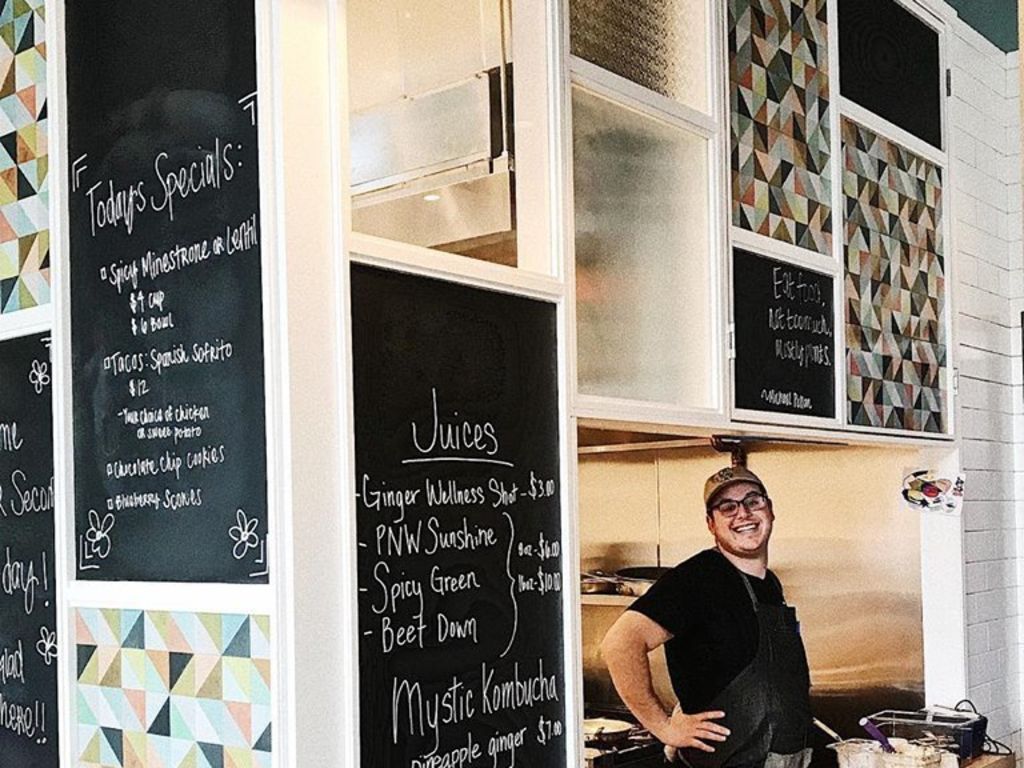 me
Secon
day!
here!!
Today's Specials:
Spicy Minestrone or Lentil
$4 cup
$6 Bowl
Tacos: Spanish Sofrito
$12
-Your choice of chicken
or sweet potato
Chocolate Chip Cookies
Blueberry Scones
Juices
-Ginger Wellness Shot-$3.00
-PNW Sunshine
8oz-$6.00
-Spicy Green
16oz-$10.00
-Beet Down
Mystic Kombucha
pineapple ginger $7.00
Eat food,
Not too much,
Mostly plants.
~Michael Pollan